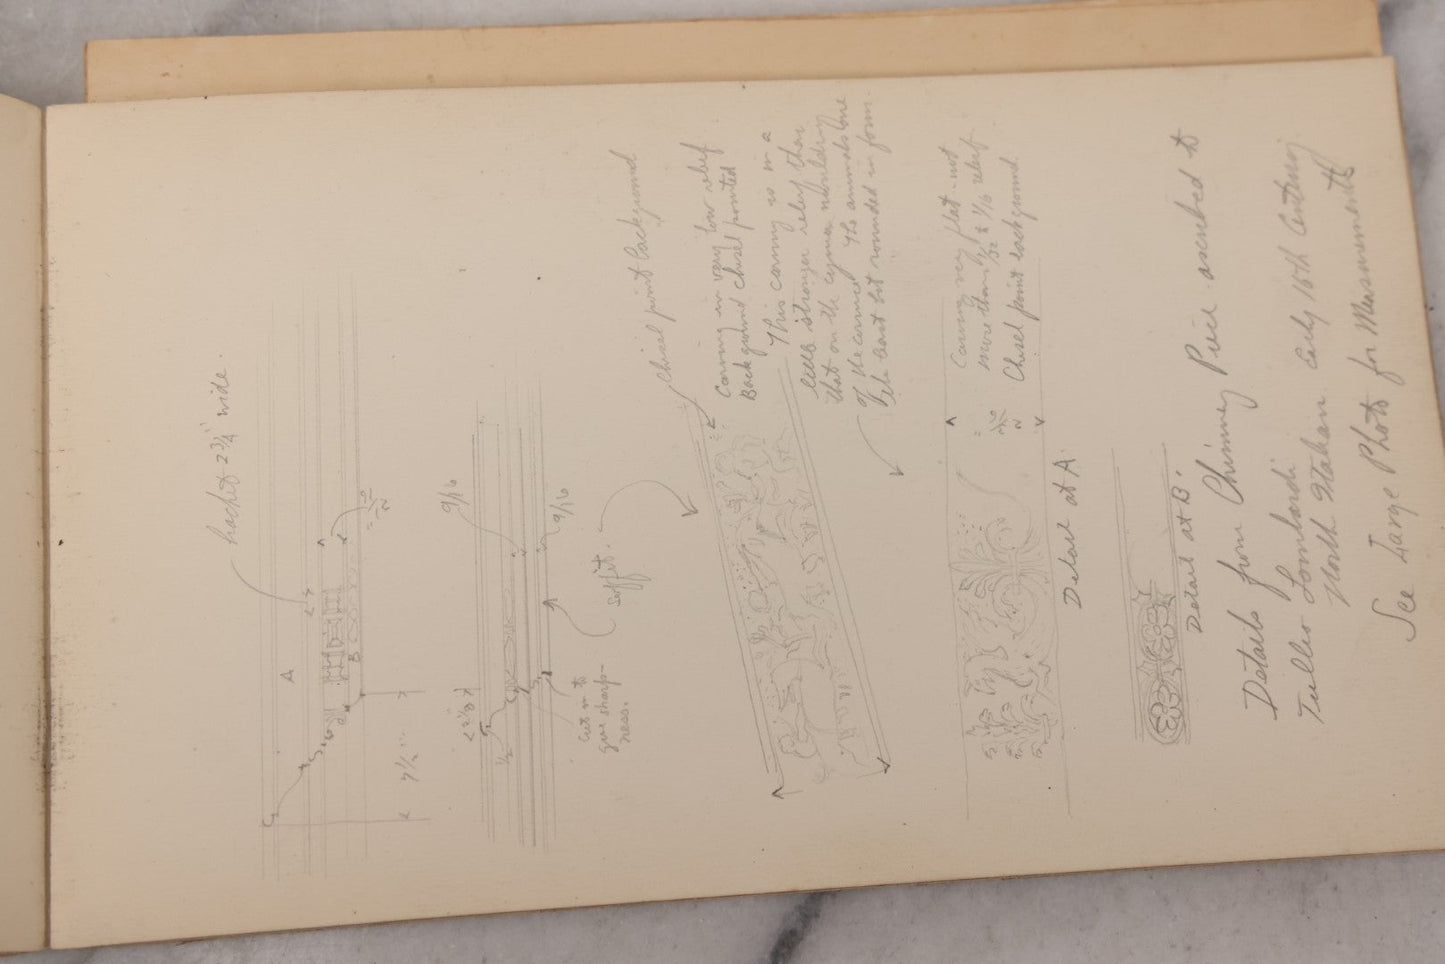 bracket 2 3/4" wide.
A
B
7 1/2"
9/16
9/16
2 1/8
1/2
Cut in to
give sharp-
ness.
Soffit.
Chisel point background
Carving in very low relief
Background chisel pointed
This carving is in a
little stronger relief than
that on the cyma moulding
of the cornice. The animals are
the least bit rounded in form.
Carving very flat - not
more than 1/32 & 1/16 relief
Chisel point background.
Detail at A
Detail at B.
Details from Chimney Piece ascribed to
Tullio Lombardi
North Italian. Early 16th Century
See Large Photo for Measurements